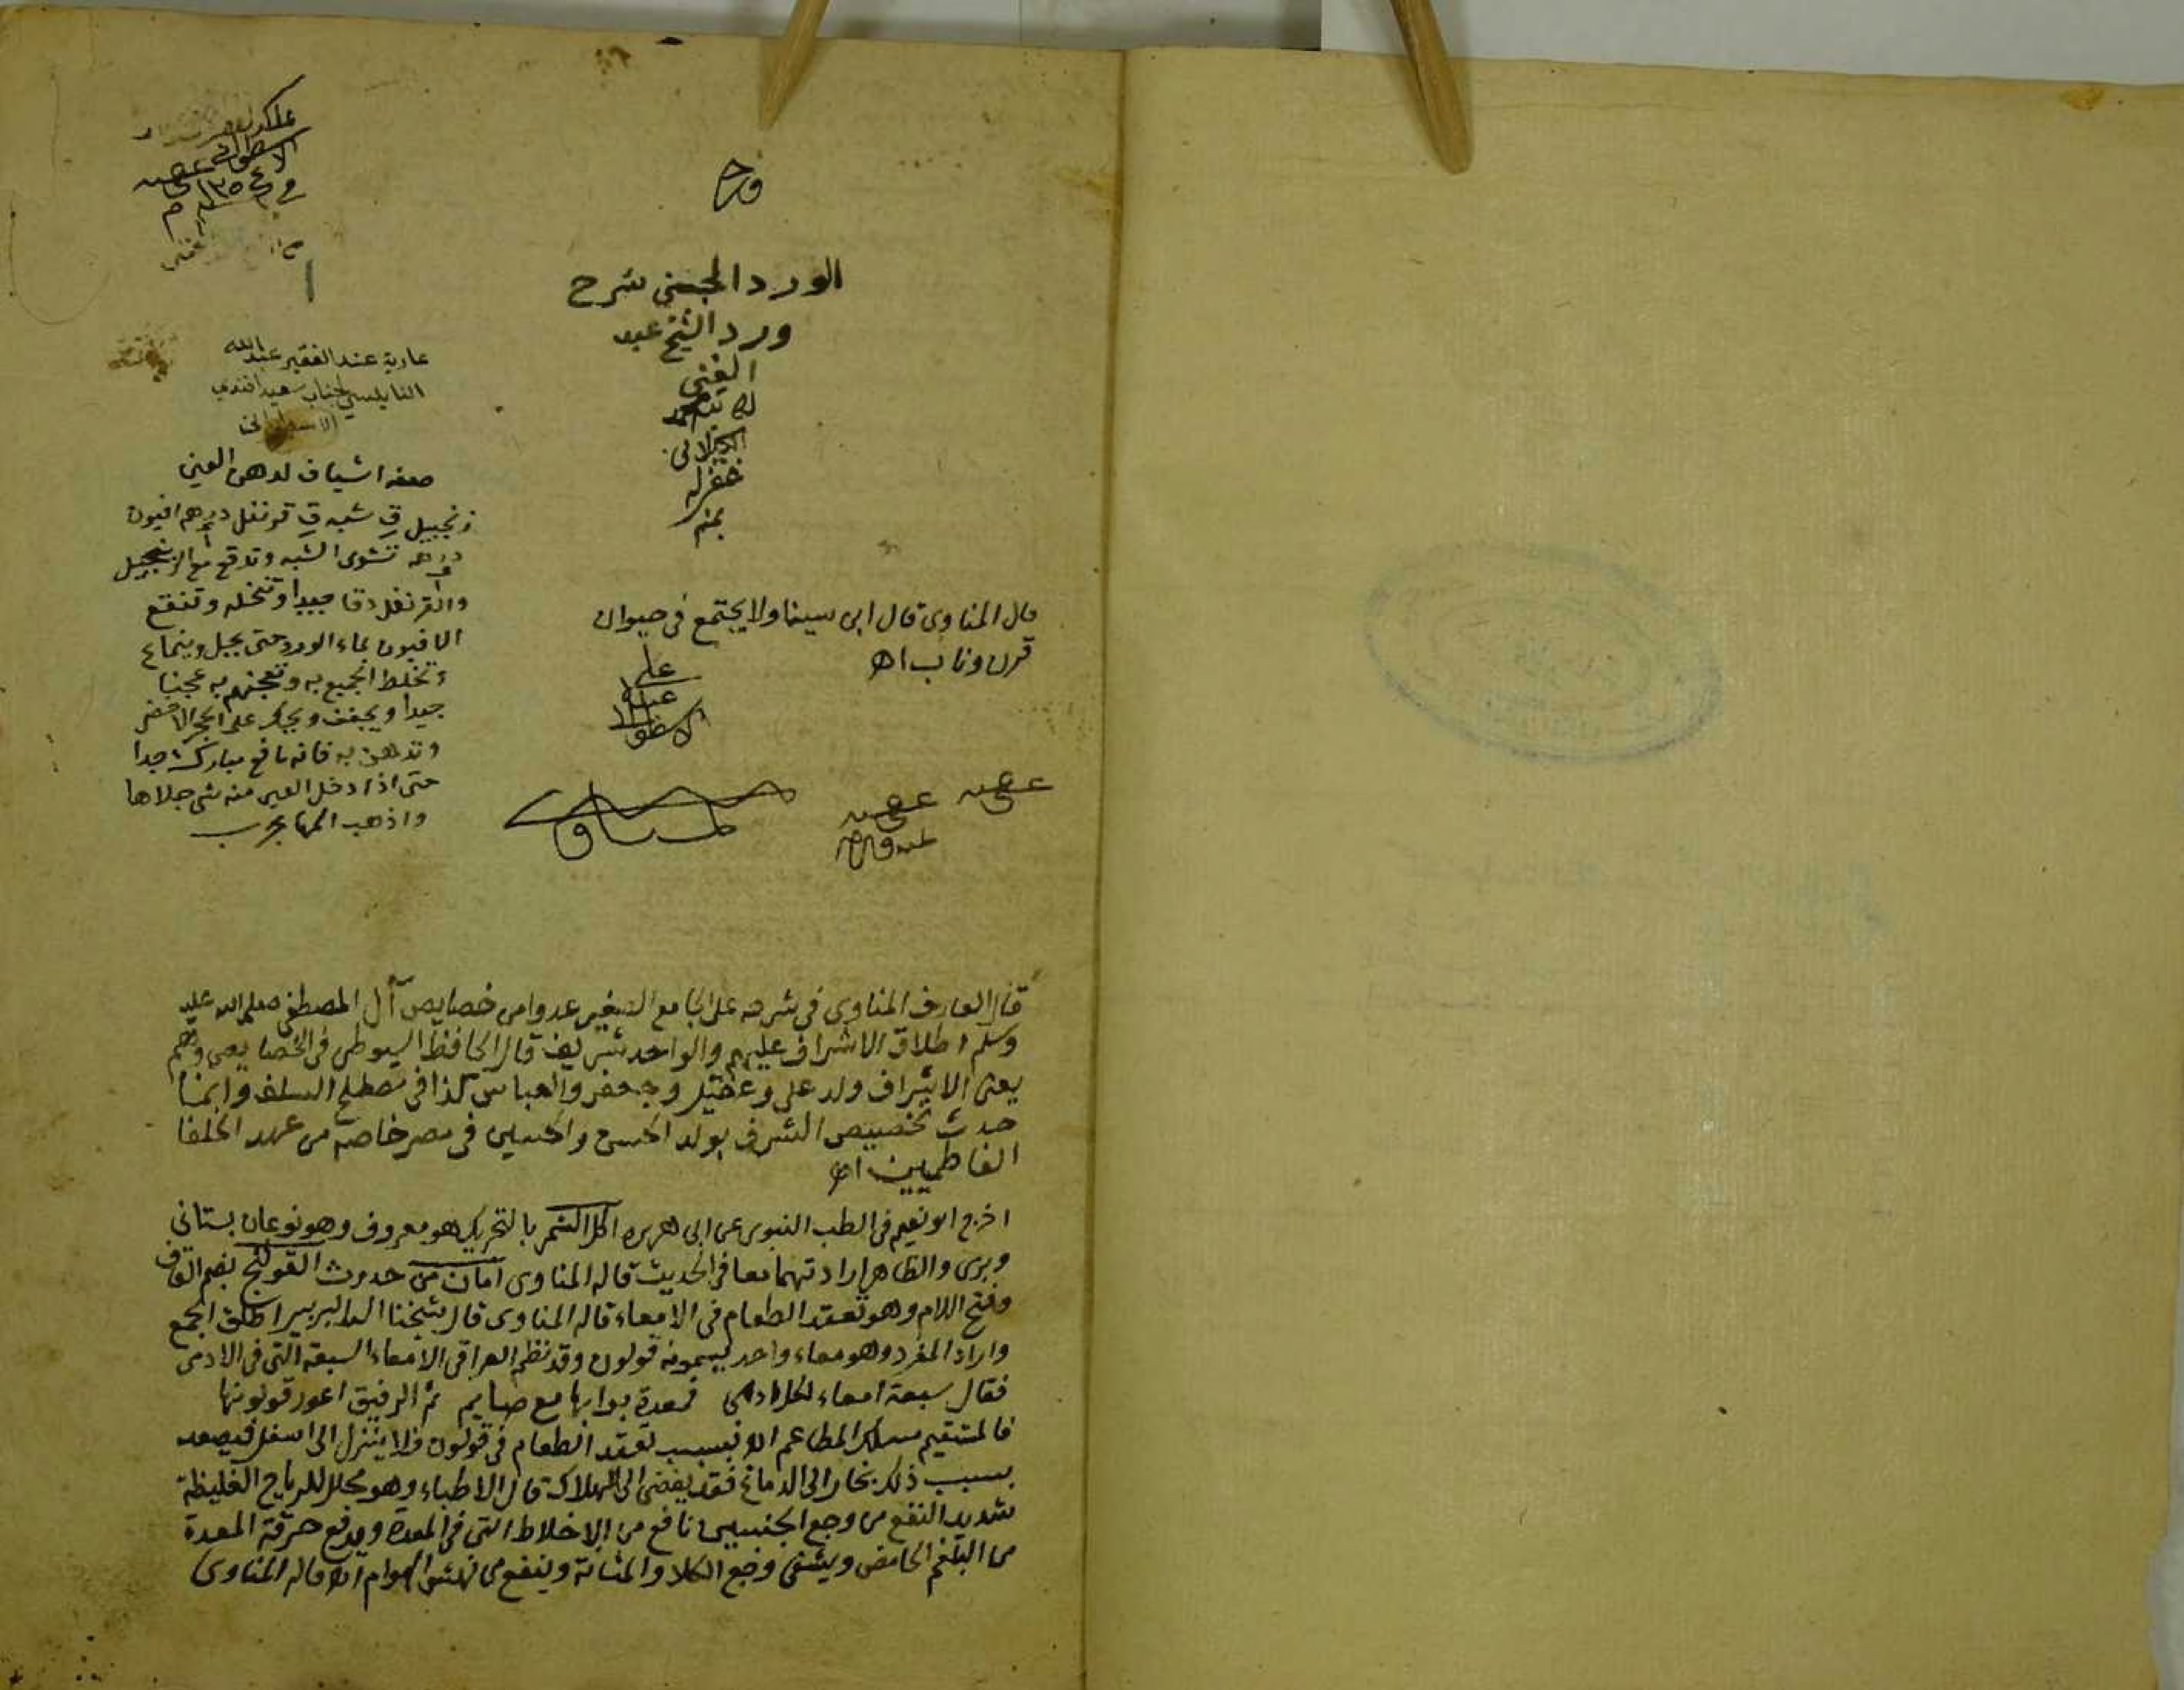 الورد الجني شرح
ورد الشيخ عبد
الغني
لكاتبه محمد
الكيلاني
غفر له
بمنه
في ١٣٥٤
عارية عند الفقير عبد الله
النابلسي لجناب سعيد افندي
الاسطواني
صفة اشياف لدهن العين
زنجبيل شبه قرنفل درهم افيون
درهم تشوى الشبه وتدق مع الزنجبيل
والقرنفل دقا جيدا وتنخله وتنقع
الافيون بماء الورد حتى يحبل وينماع
وتخلط الجميع به وتعجنهم به عجنا
جيدا ويجفف ويحكر على الحجر الاخضر
وتدهن به فانه نافع مبارك جدا
حتى اذا دخل العين منه شي جلاها
واذهب المها مجرب
قال المناوي قال ابن سينا ولا يجتمع في حيوان
قرن وناب اه
قال العارف المناوي في شرحه على الجامع الصغير عدوا من خصايص آل المصطفى صلى الله عليه
وسلم اطلاق الاشراف عليهم والواحد شريف قال الحافظ السيوطي في الخصايص وهم
يعني الاشراف ولد علي وعقيل وجعفر والعباس كذا في مصطلح السلف وانما
حدث تخصيص الشرف بولد الحسن والحسين في مصر خاصة من عهد الخلفا
الفاطميين اه
اخرج ابو نعيم في الطب النبوي عن ابي هريره اكل الشمر بالتحريك هو معروف وهو نوعان بستاني
وبري والظاهر ارادتهما معا في الحديث قاله المناوي امان من حدوث القولنج بضم القاف
وفتح اللام وهو تعقد الطعام في الامعاء قاله المناوي قال شيخنا البربير اطلق الجمع
واراد المفرد وهو معاء واحد يسمونه قولون وقد نظم العراقي الامعاء السبعة التي في الادمي
فقال سبعة امعاء لكل ادمي فمعدة بوابها مع صايم ثم الرقيق اعور قولونها
فالمستقيم مسلك المطاعم اه فبسبب تعقد الطعام في قولون فلا ينزل الى اسفل فيصعد
بسبب ذلك بخار الى الدماغ فقد يفضي الى الهلاك قال الاطباء وهو محلل للرياح الغليظة
شديد النفع من وجع الجنبين نافع من الاخلاط التي في المعدة ويدفع حرقة المعدة
من البلغم الحامض ويشفي وجع الكلا والمثانة وينفع من نهش الهوام اه قاله المناوي